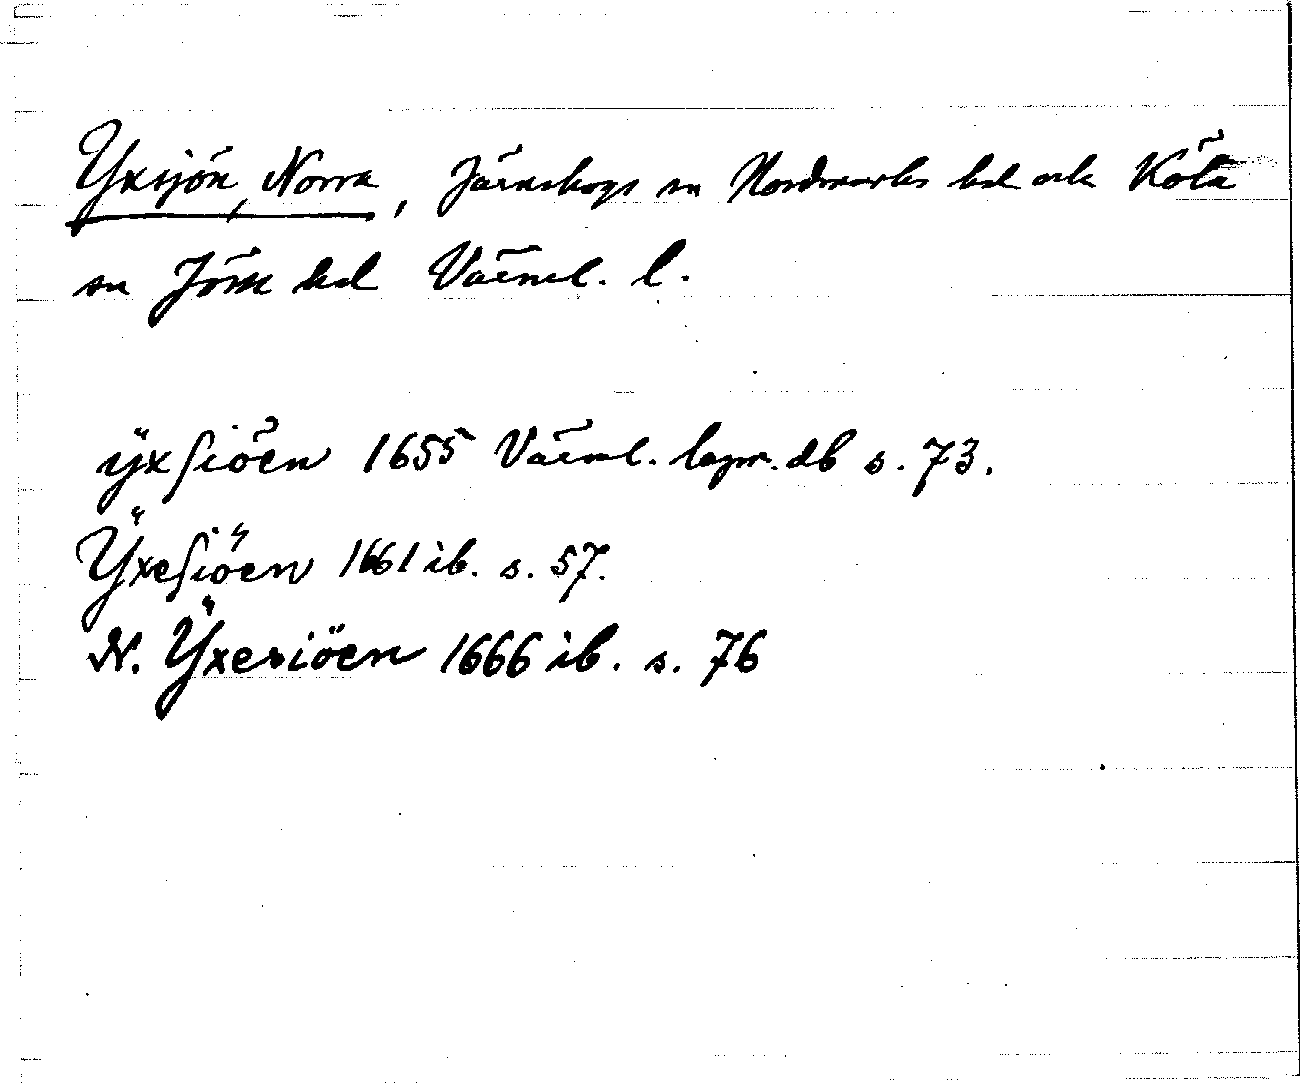 Yxsjön, Norra, Järnskogs sn Nordmarks hd och Köla
sn Jöss hd Värml. l.
ÿxsiöen 1655 Värml. lagm. db s. 73.
Ÿxesiöen 1661 ib. s. 57.
N. Ÿxesiöen 1666 ib. s. 76